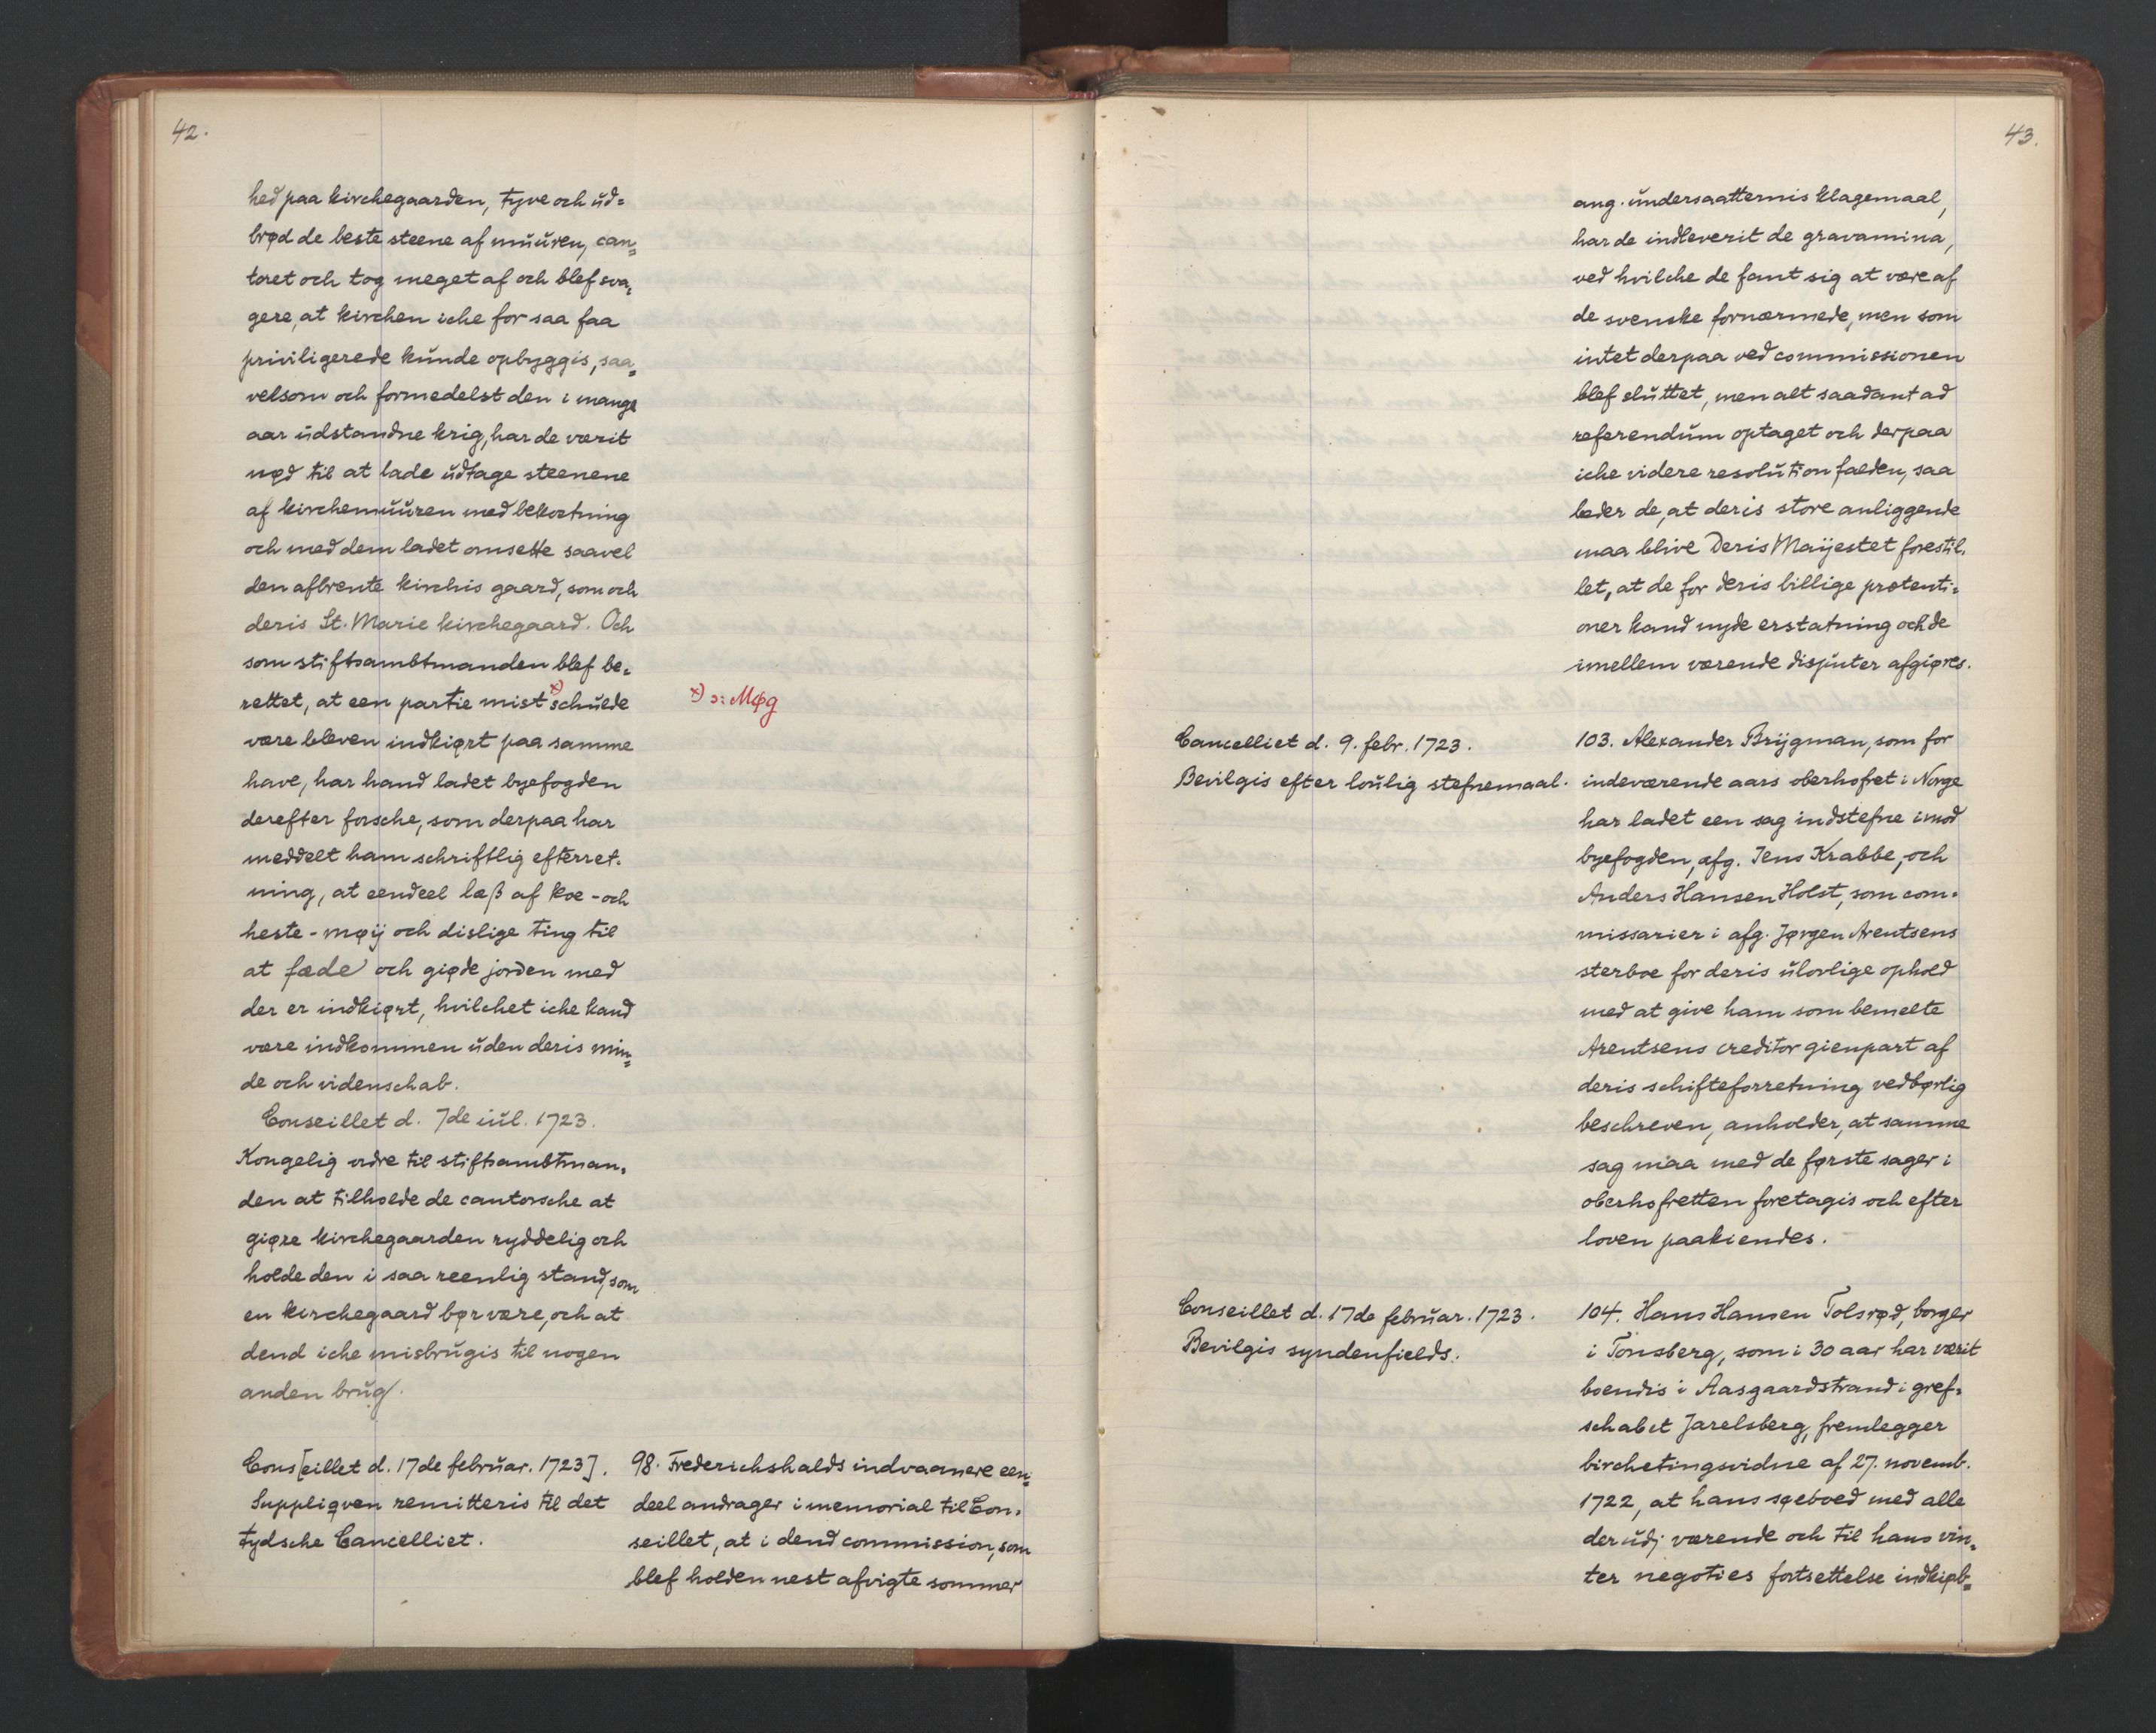 42.
hed paa kirchegaarden, tyve och ud=
brød de beste steene af muuren, can=
toret och tog meget af och blef sva=
gere, at kirchen iche for saa faa
priviligerede kunde opbyggis, saa=
velsom och formedelst den i mange
aar udstandne krig, har de værit
nød til at lade udtage steenene
af kirchemuuren med bekostning
och med dem ladet omsette saavel
den afbrente kirchis gaard, som och
deris St. Marie kirchegaard. Och
som stiftsambtmanden blef be=
rettet, at een partie mist x) schulde
være bleven indkiørt paa samme
x) ɔ: Møg
have, har hand ladet byefogden
derefter forsche, som derpaa har
meddelt ham schriftlig efterret=
ning, at eendeel læß af koe- och
heste-møij och dislige ting til
at fæde och giøde jorden med
der er indkiørt, hvilchet iche kand
være indkommen uden deris min=
de och videnschab.
Conseillet d. 7de iul. 1723.
Kongelig ordre til stiftsambtman=
den at tilholde de cantorsche at
giøre kirchegaarden ryddelig och
holde den i saa reenlig stand, som
en kirchegaard bør være, och at
dend iche misbrugis til nogen
anden brug.
Cons[eillet d. 17de februar. 1723].
Suppliqven remitteris til det
tydsche Cancelliet.
98. Frederichshalds indvaanere een=
deel andrager i memorial til Con=
seillet, at i dend commission, som
blef holden nest afvigte sommer
43.
ang. undersaatternis klagemaal,
har de indleverit de gravamina,
ved hvilche de fant sig at være af
de svenske fornærmede, men som
intet derpaa ved commissionen
blef sluttet, men alt saadant ad
referendum optaget och derpaa
iche videre resolution falden, saa
beder de, at deris store anliggende
maa blive Deris Maijestet forestil=
let, at de for deris billige prætenti=
oner kand nyde erstatning och de
imellem værende disputer afgiøres.
Cancelliet d. 9. febr. 1723.
Bevilgis efter loulig stefnemaal.
103. Alexander Brijgman, som for
indeværende aars oberhofret i Norge
har ladet een sag indstefne imod
byefogden, afg. Jens Krabbe, och
Anders Hansen Holst, som com=
missarier i afg. Jørgen Arentsens
sterboe for deris ulovlige ophold
med at give ham som bemelte
Arentsens creditor gienpart af
deris schifteforretning vedbørlig
beschreven, anholder, at samme
sag maa med de første sager i
oberhofretten foretagis och efter
loven paakiendes.
Conseillet d. 17de februar. 1723.
Bevilgis syndenfields.
104. Hans Hansen Tolsrød, borger
i Tonsberg, som i 30 aar har værit
boendis i Aasgaardstrand i gref=
schabet Jarelsberg, fremlegger
birchetingsvidne af 27. novemb.
1722, at hans søeboed med alle
der udj værende och til hans vin=
ter negoties fortsettelse indkiøb=